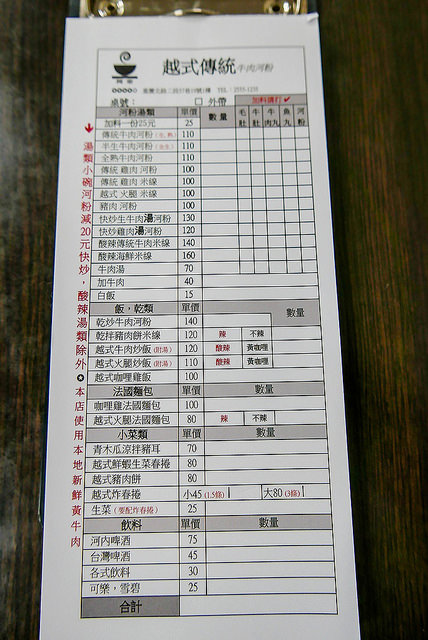 越式傳統牛肉河粉
桌號： □ 外帶 加料請打✓
河粉湯類 單價 數量 毛肚 牛肚 牛肉丸 魚丸 河粉
加料一份25元 25
傳統牛肉河粉 110
半生牛肉河粉 110
全熟牛肉河粉 110
傳統 雞肉 河粉 100
傳統 雞肉 米線 100
越式 火腿 米線 100
豬肉 河粉 100
快炒生牛肉湯河粉 130
快炒雞肉湯河粉 120
酸辣傳統牛肉米線 140
酸辣海鮮米線 160
牛肉湯 70
加牛肉 40
白飯 15
飯，乾類 單價 數量
乾炒牛肉河粉 140
乾拌豬肉餅米線 120 辣 不辣
越式牛肉炒飯(附湯) 120 酸辣 黃咖哩
越式火腿炒飯(附湯) 110 酸辣 黃咖哩
越式咖哩雞飯 100
法國麵包 單價 數量
咖哩雞法國麵包 100
越式火腿法國麵包 80 辣 不辣
小菜類 單價 數量
青木瓜涼拌豬耳 70
越式鮮蝦生菜春捲 80
越式豬肉餅 80
越式炸春捲 小45 (1.5條) 大80 (3條)
生菜 (要配炸春捲) 25
飲料 單價 數量
河內啤酒 75
台灣啤酒 45
各式飲料 30
可樂，雪碧 25
合計
湯類小碗河粉減20元快炒，酸辣湯類除外✪本店使用本地新鮮黃牛肉